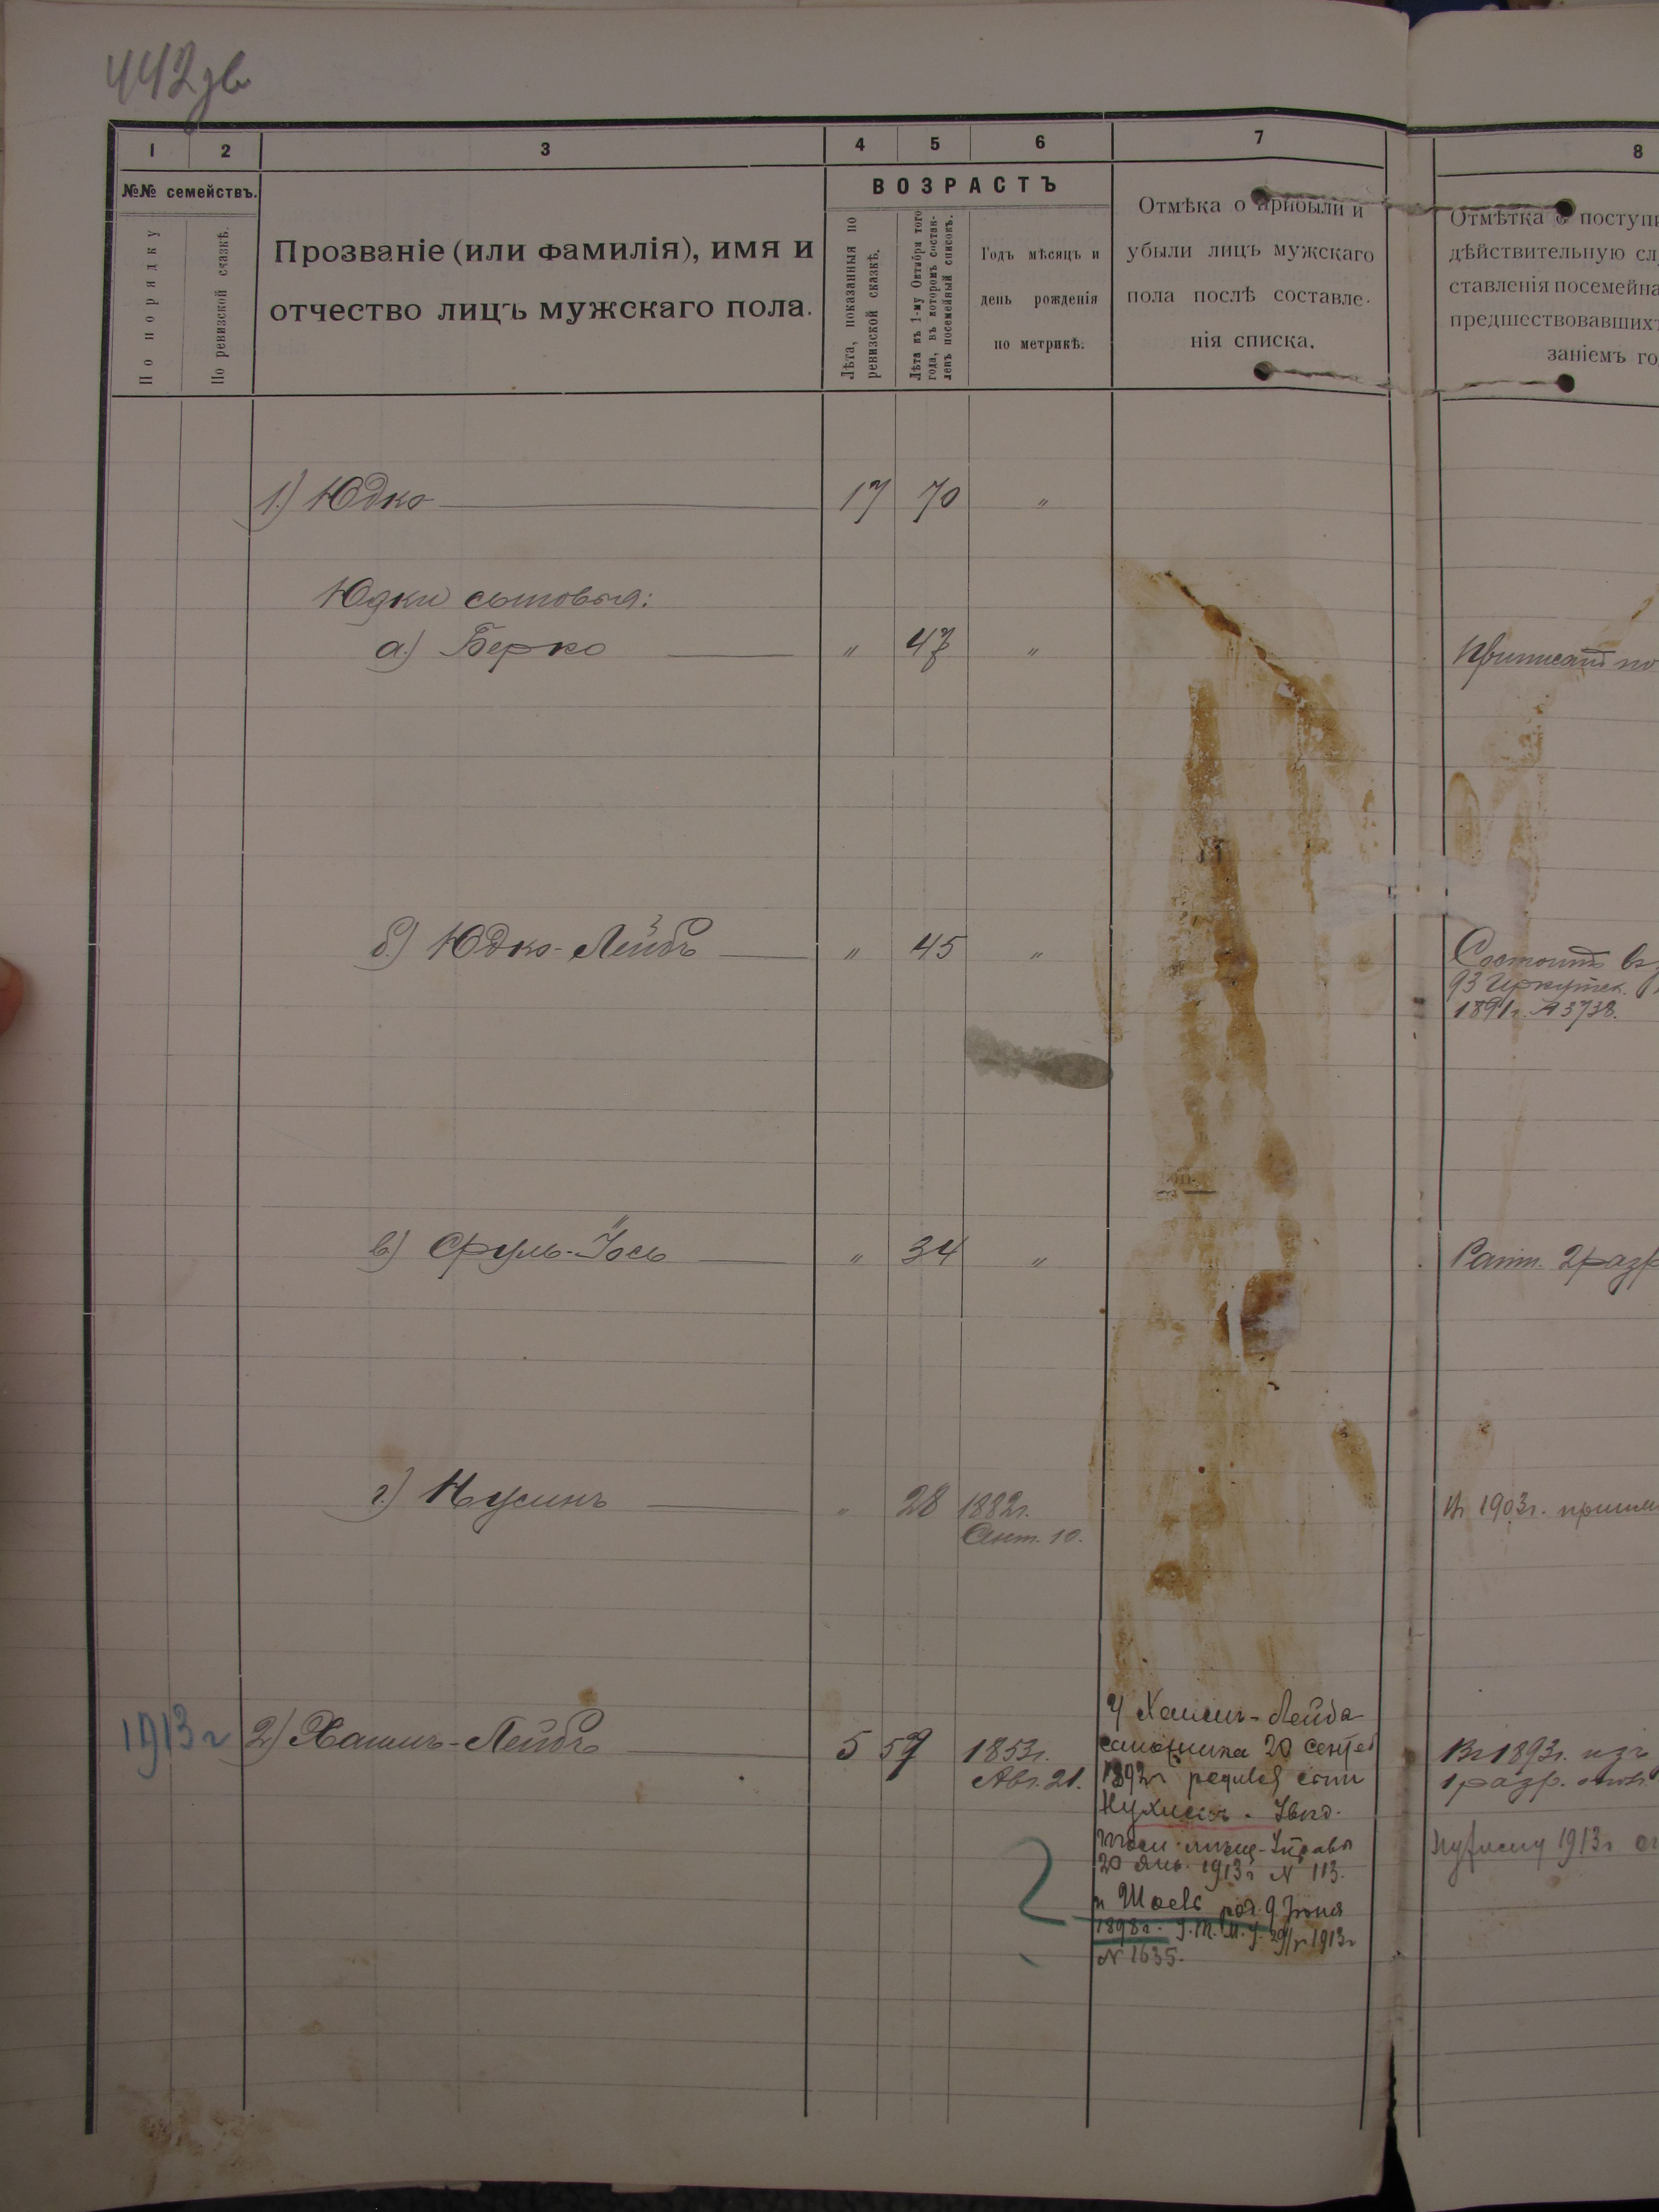 442 зв
1 2 3 4 5 6 7 8
№№ семействъ.
По порядку
По ревизской сказкѣ.
Прозваніе (или фамилія), имя и
отчество лицъ мужскаго пола.
ВОЗРАСТЪ
Лѣта, показанныя по
ревизской сказкѣ.
Лѣта къ 1-му Октября того
года, въ которомъ состав-
ленъ посемейный списокъ.
Годъ мѣсяцъ и
день рожденія
по метрикѣ.
Отмѣка о прибыли и
убыли лицъ мужскаго
пола послѣ составле-
нія списка.
Отмѣтка о поступи
дѣйствительную сл
ставленія посемейна
предшествовавших
заніемъ го
1.) Юдко 17 70 "
Юдки сыновья:
а.) Берко " 47 "
б.) Юдко-Лейбъ " 45 "
Состоитъ въ
93 Иркутск.
1891г. № 3738.
в) Сруль-Іосъ " 34 "
Ратн. 2 разр
г.) Нусинъ " 28 1882г.
Сент. 10.
Въ 1903г.
1913 г 2) Хаимъ-Лейбъ 5 57 1853г.
Авг. 21.
У Хаимъ-Лейба
20 сент
1892г
Нухимъ. Увѣд.
мѣщ. Управы
20 Янв. 1913 г № 113.
и Шаевъ род. 9 Іюня
1898 г. У. Т. М. У. 1913г
№ 1635.
Въ 1893г. изъ
1 разр.
Нухиму 1913 г